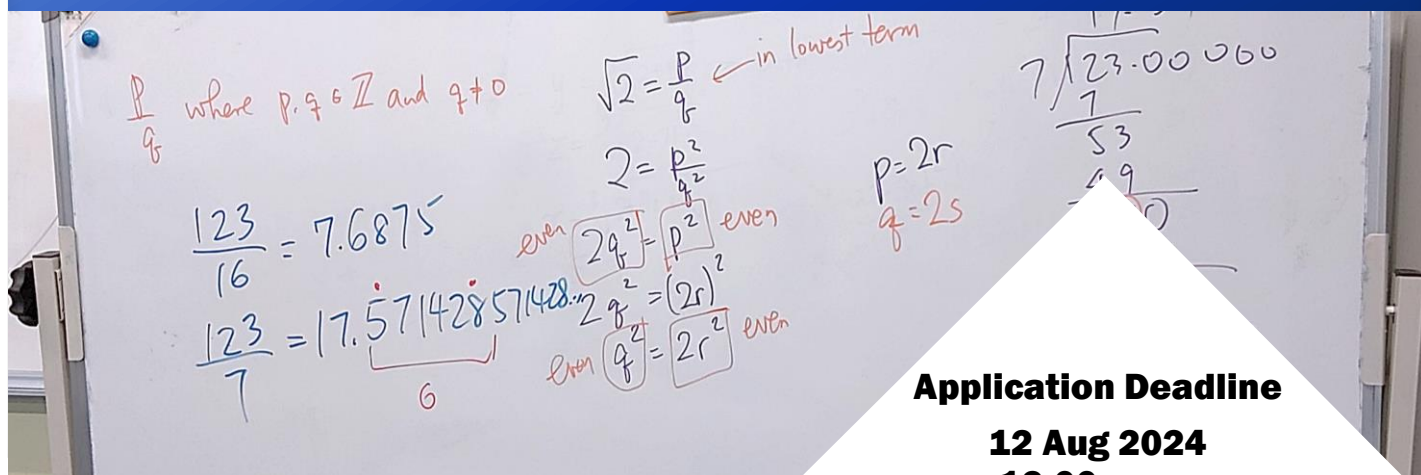 p/q where p, q ∈ ℤ and q ≠ 0
123/16 = 7.6875
123/7 = 17.5̇71428̇571428...
6
√2 = p/q ← in lowest term
2 = p²/q²
even 2q² = p² even
2q² = (2r)²
even q² = 2r² even
p = 2r
q = 2s
7 123.00000
7
53
49
Application Deadline
12 Aug 2024